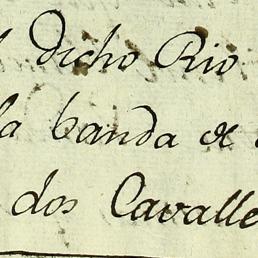 dicho Rio
la banda de
dos Cavalle